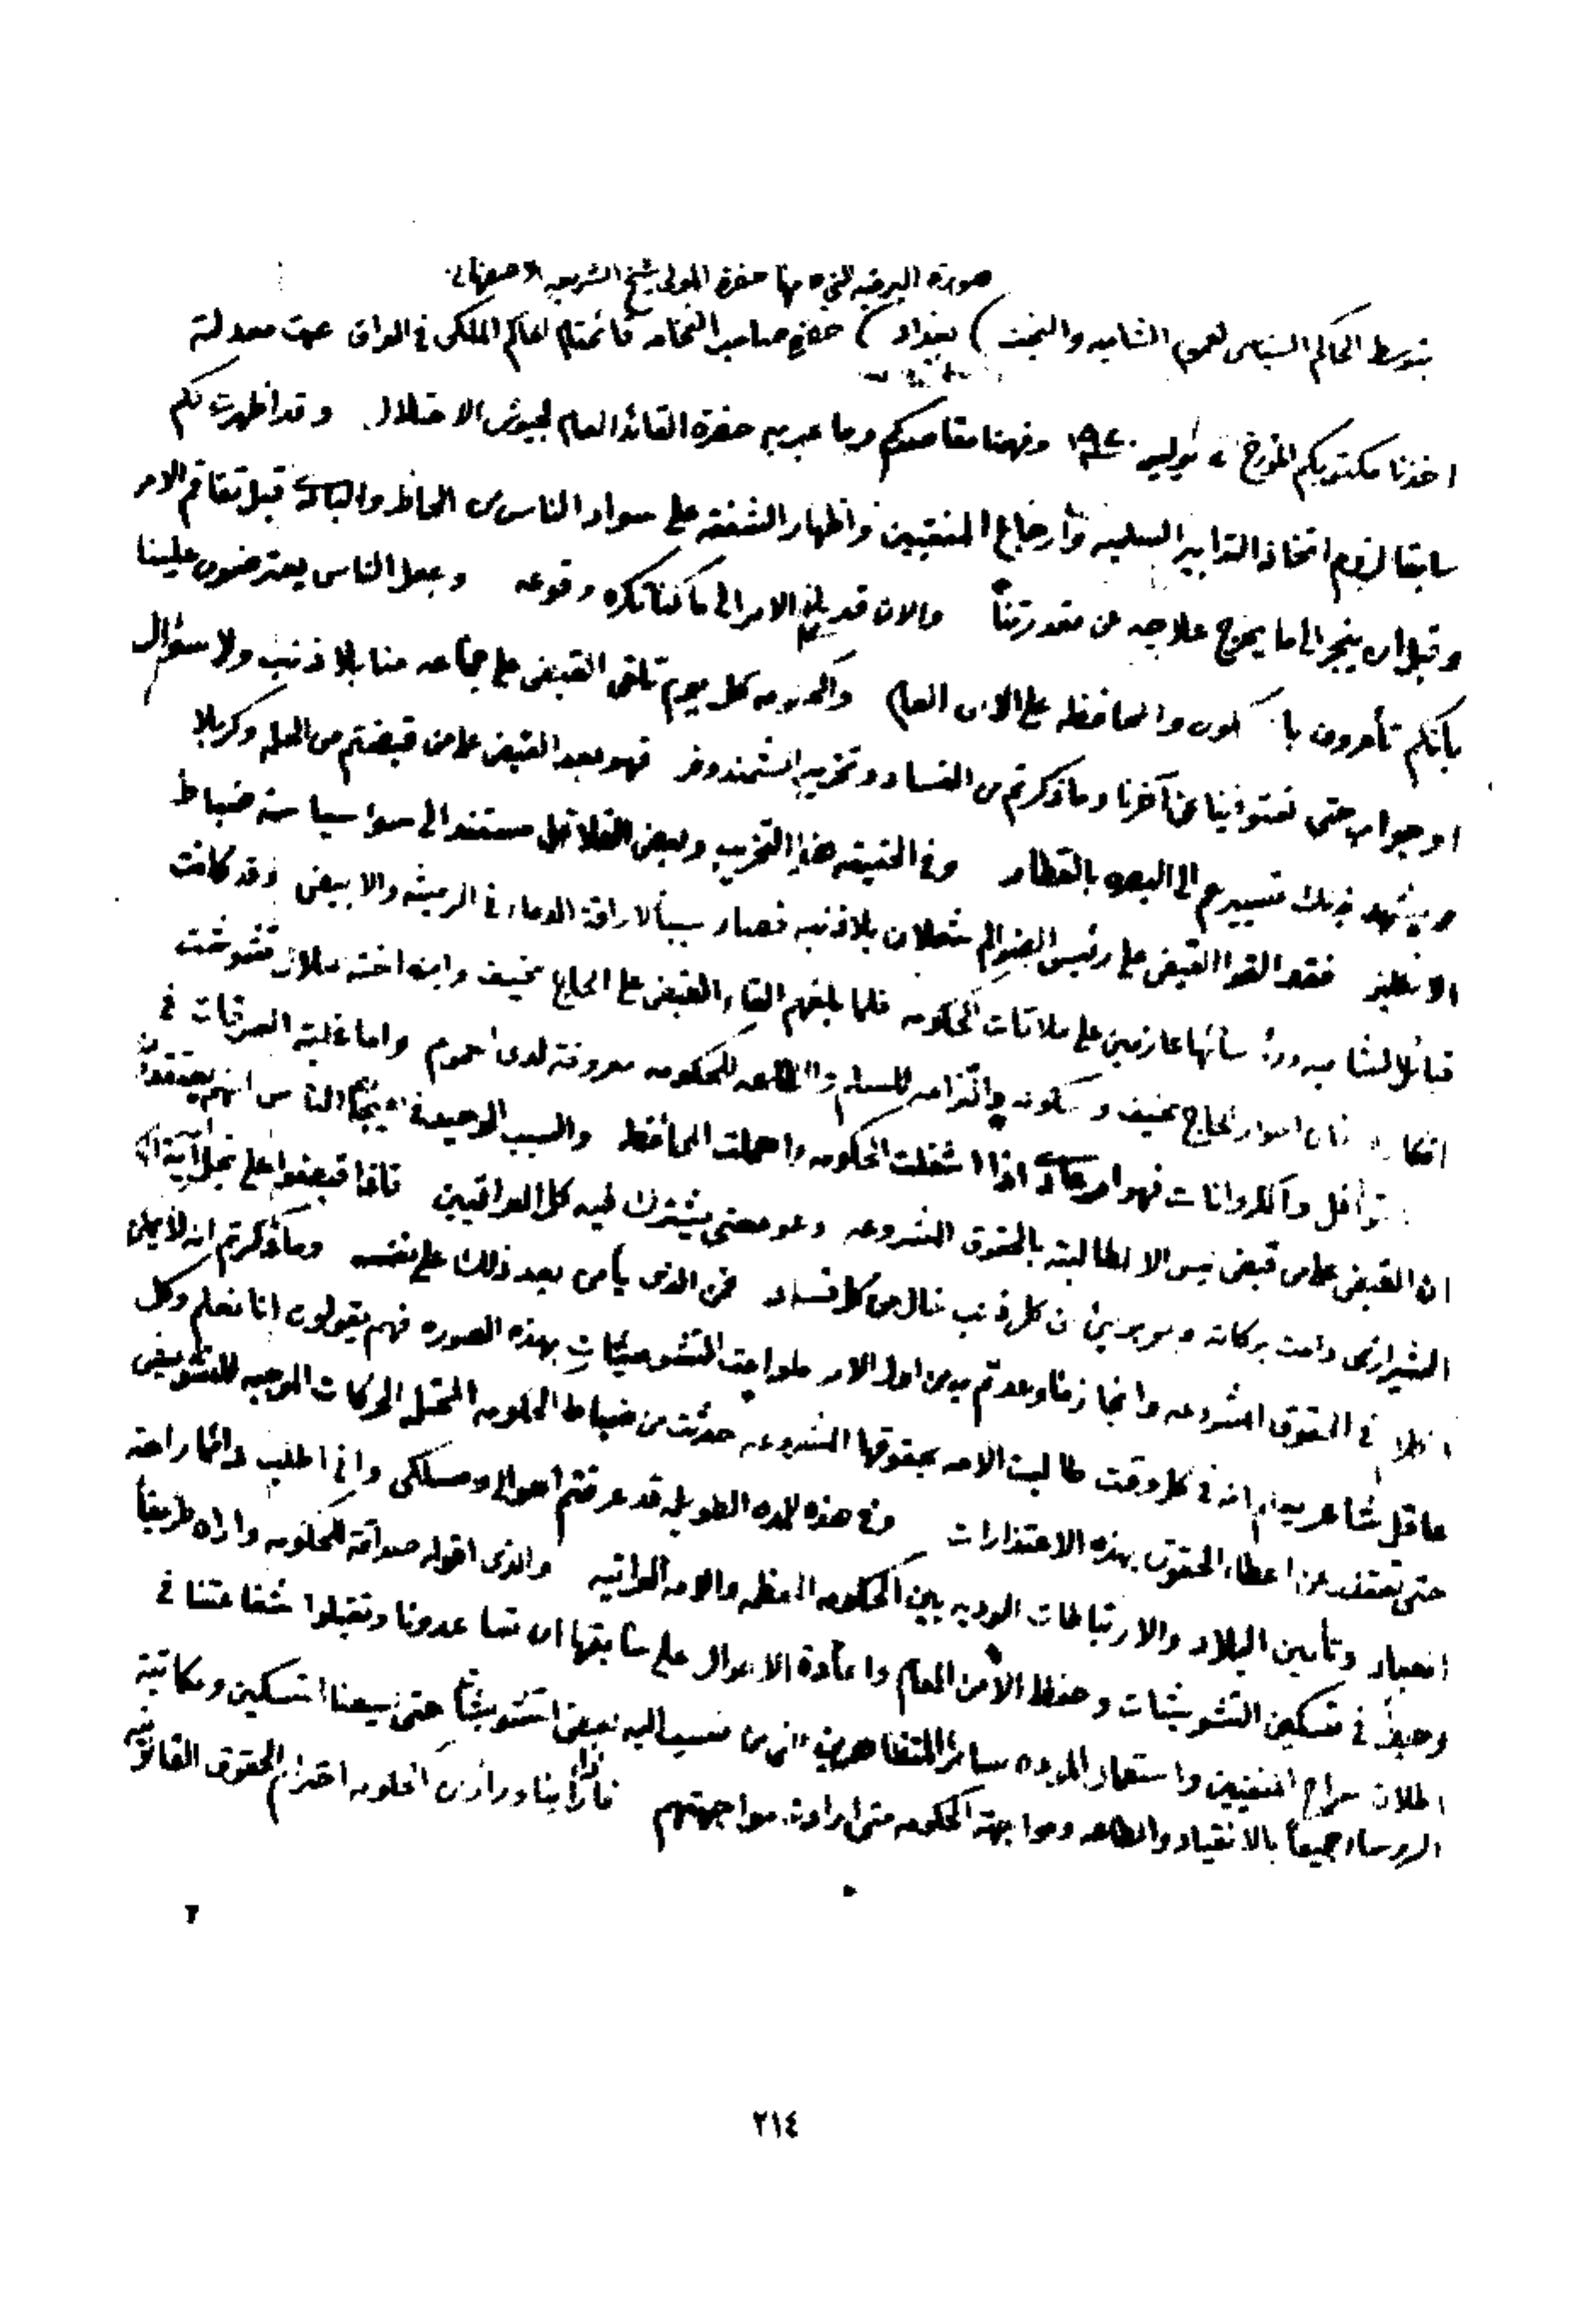 صورة البرقيه حضرة المولى شيخ الشريعه الاصفهاني
بتوسط الحاكم السياسي لعموم الشاميه والنجف ) بغداد ) حضرة صاحب الفخامه قائمقام الحاكم الملكي في العراق عمت معدلته
اخذنا مكتوبكم المؤرخ يوليو ١٩٢٠ وفهمنا مقاصدكم وما عبر به حضرة القائد العام لجيوش الاحتلال وقد اظهرت لكم
سابقا لزوم اتخاذ التدابير السلميه وأرجاع المنفيين واظهار الشفقه على سواد الناس من الحاظر والباد قبل تفاقم الامر
وقبل ان ينجر الى ما يخرج علاجه عن مقدرتنا والان قد بلغ الامر الى ما كنا نكره وقوعه وجعل الناس يعترضون علينا
بأنكم تأمرون با لسكون والمحافظه على الامن العام والحكومه كل يوم تلقى القبض على جماعه منا بلا ذنب ولا سئوال
او جواب حتى نفتوفينا عن آخرنا وما ذكرتم من الفساد وتخريب الشمندوفر فهو بعد القبض على من قبضتم من الحله وكربلا
ويشهد بذلك تسييرهم الى البصره بالقطار وفي الحقيقه هذا التخريب وبعض القلاقل مستند الى سوء سياسة ضباط
الانكليز فقد القوا القبض على رئيس الضوالم شعلان بلا ذنب فصار سببا لاراقة الدماء في الرميثه والابيض وقد كانت
قبائل الشاميه ورؤسائها عازمين على ملاقات الحكومه فلما بلغهم القاء القبض على الحاج مخيف وابن اخته سلمان تشوشت
افكارهم فان اطوار الحاج مخيف وسكونه والتزامه للسلم والطاعه للحكومه معروفة لدى العموم واما غلبة السرقات في
القوافل والكروانات فهو امر عادي اذا اشغلت الحكومه واهملت المحافظه والسبب الوحيد لهيجان الناس انهم يعتقدون
ان القبض على من قبض ليس الا لمطالبته بالحقوق المشروعه وهو معنى يشترك فيه كل العراقيين فاذا قبضوا على نجل آية الله
الشيرازي دامت بركاته وهو برئ من كل ذنب خال من كل فساد فمن الذي يأمن بعد ذلك على نفسه وما ذكرتم انه لا يمكن
النظر في الحقوق المشروعه وانجاز ما وعدتم به من اول الامر ملواقت التشويشات بهذه الصوره فهم يقولون انا نعلم وكل
عاقل شاعر يعلم انه في كل وقت طالبت الامه بحقوقها المشروعه حدثت من ضباط الحكومه المحتله الحركات الموجبه للتشويش
حتى تعتذر عن اعطاء الحقوق بهذه الاعتذارات وفي هذه المده الطويله قد عرفتم احوالي ومسلكي واني اطلب دائما راحة
العباد وتأمين البلاد والارتباطات الوديه بين الحكومه المعظمه والامه العراقيه والذي اقوله صداقة للحكومه واراه طريقاً
وحيداً في تسكين التشويشات وحفظ الامن العام واعادة الاحوال على سابقها ان تساعدونا وتقبلوا شفاعتنا في
اطلاق سراح المنفيين واستعمال الموده سائر المتظاهرين من نسب اليه بعض التشويشات حتى يسعنا التسكين ومكاتبة
الرؤساء جميعا بالانقياد والطاعه ومواجهة الحكومه متى ارادت مواجهتهم فاذا رأينا ورأوا من الحكومه احترام الحقوق القانونيه
٢
٢١٤